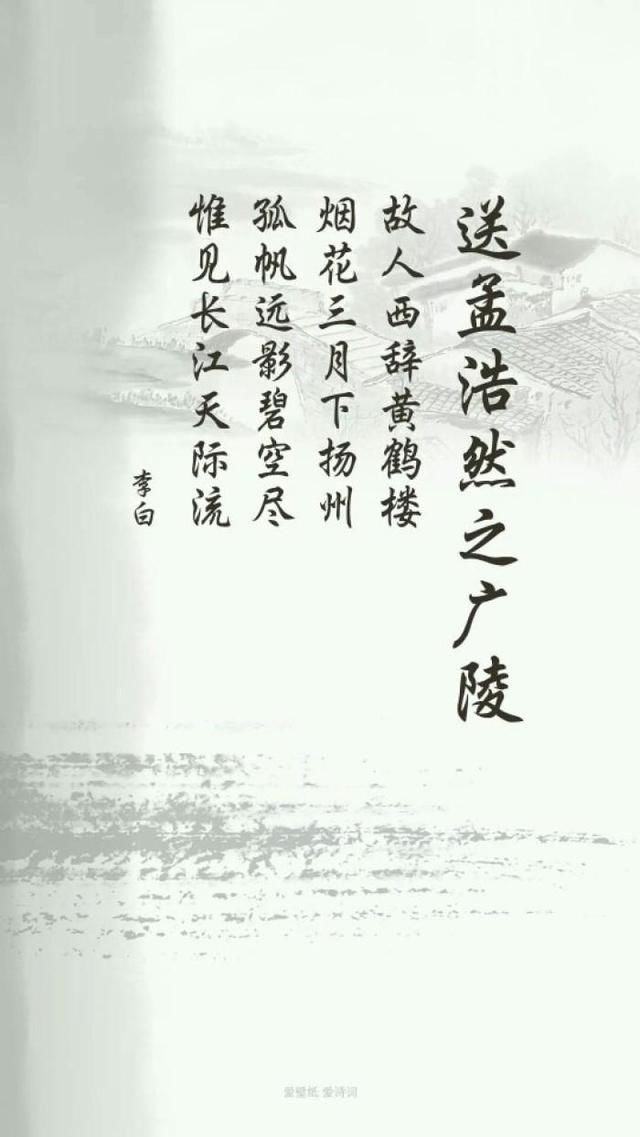 送孟浩然之广陵
故人西辞黄鹤楼
烟花三月下扬州
孤帆远影碧空尽
惟见长江天际流
李白
爱壁纸 爱诗词